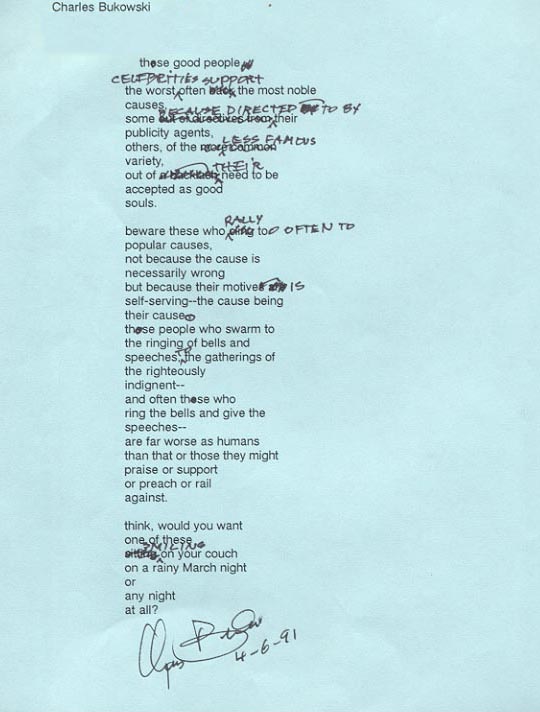 Charles Bukowski
these good people
CELEBRITIES SUPPORT
the worst often back the most noble
causes,
BECAUSE DIRECTED TO BY
some out of directives from their
publicity agents,
LESS FAMOUS
others, of the more common
variety,
THEIR
out of need to be
accepted as good
souls.
RALLY
beware these who too OFTEN TO
popular causes,
not because the cause is
necessarily wrong
but because their motive IS
self-serving--the cause being
their cause.
these people who swarm to
the ringing of bells and
TO
speeches, the gatherings of
the righteously
indignent--
and often these who
ring the bells and give the
speeches--
are far worse as humans
than that or those they might
praise or support
or preach or rail
against.
think, would you want
one of these
SMILING
sitting on your couch
on a rainy March night
or
any night
at all?
4-6-91